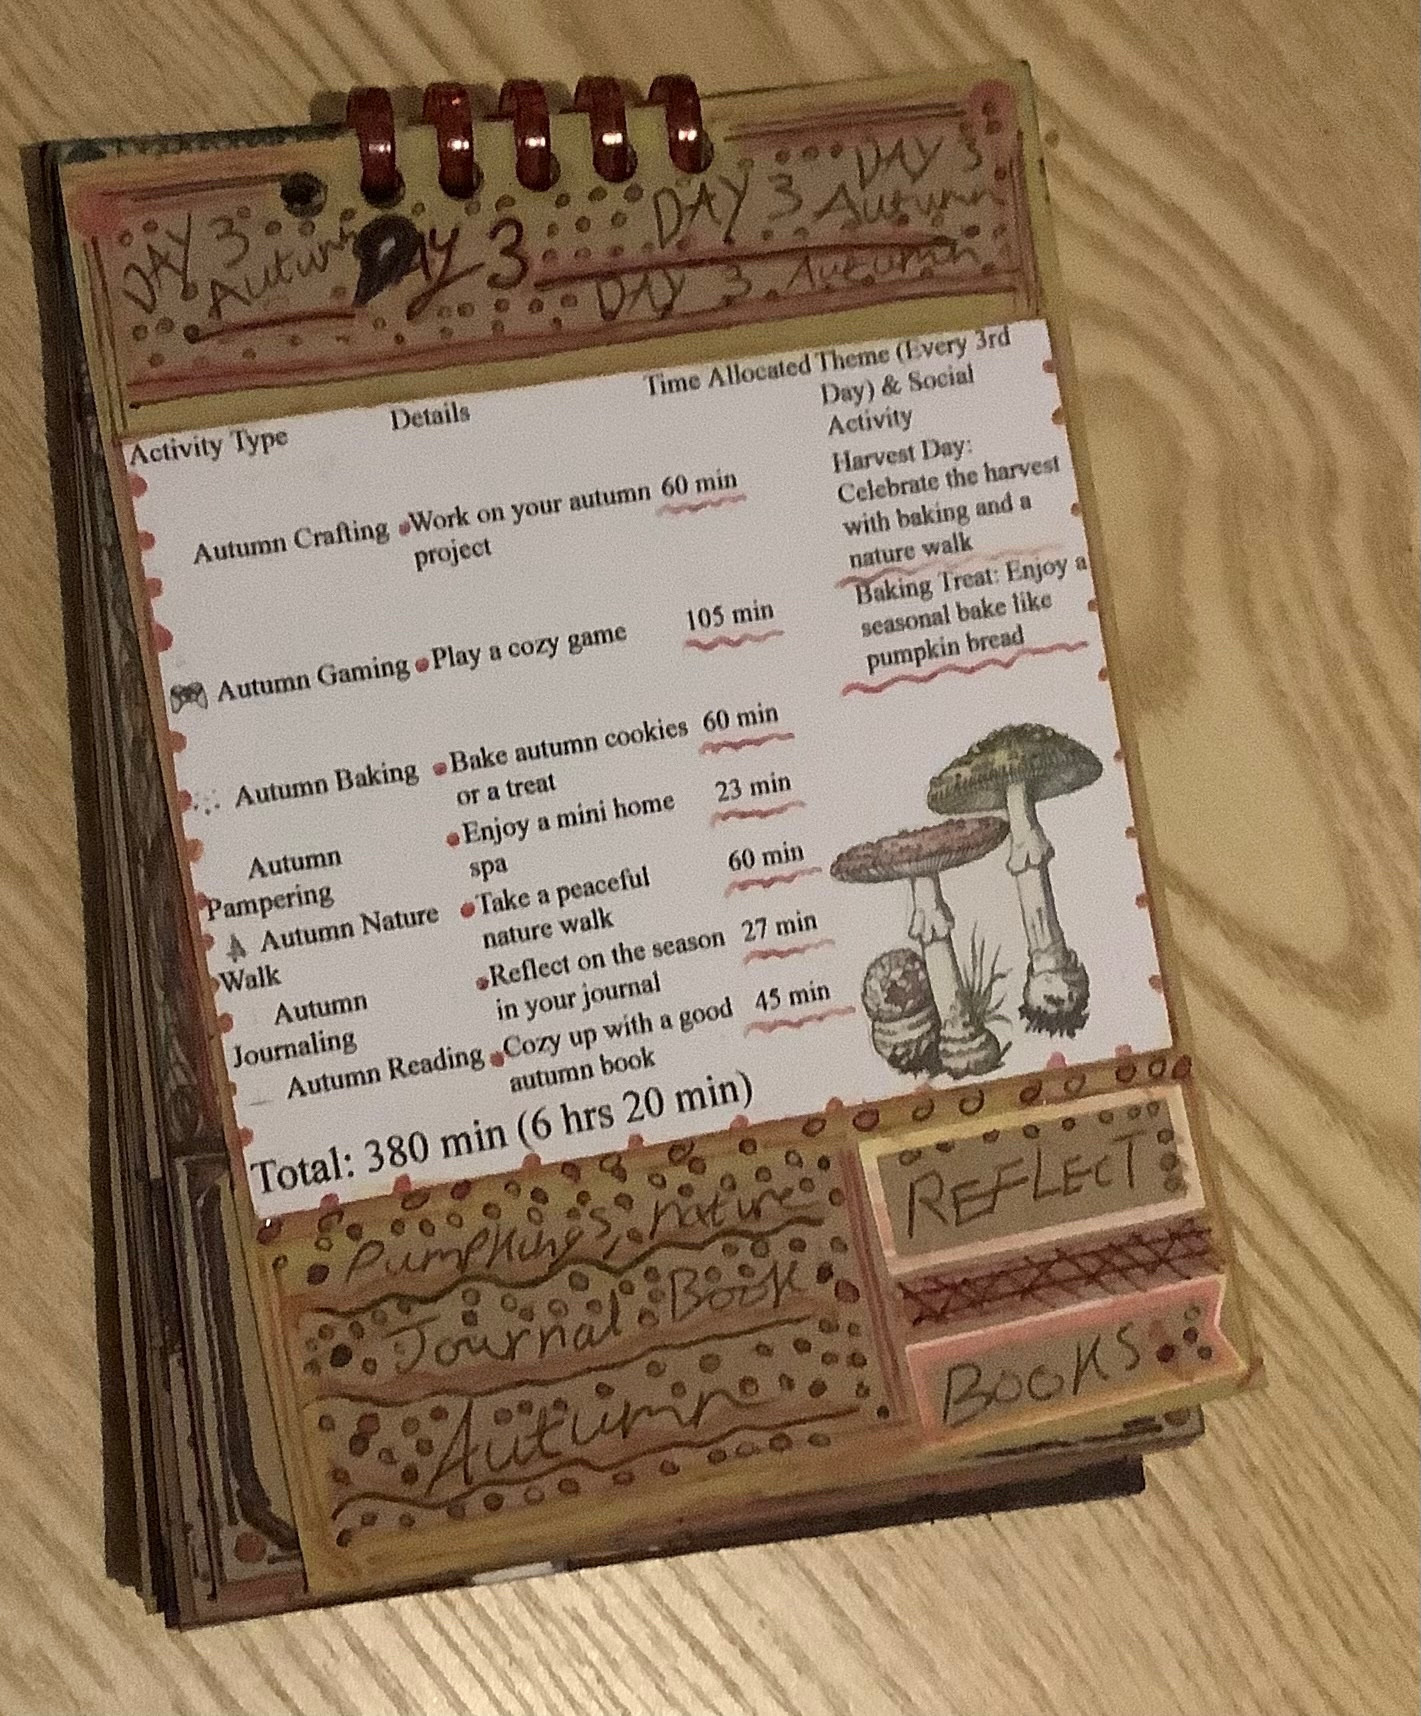 DAY 3
Autumn
DAY 3
DAY 3
DAY 3
Autumn
DAY 3 Autumn
Activity Type Details Time Allocated Theme (Every 3rd
Day) & Social
Activity
Autumn Crafting Work on your autumn 60 min
project
Harvest Day:
Celebrate the harvest
with baking and a
nature walk
Autumn Gaming Play a cozy game 105 min
Baking Treat: Enjoy a
seasonal bake like
pumpkin bread
Autumn Baking Bake autumn cookies 60 min
or a treat
Autumn Enjoy a mini home 23 min
Pampering spa
Autumn Nature Take a peaceful 60 min
Walk nature walk
Autumn Reflect on the season 27 min
Journaling in your journal
Autumn Reading Cozy up with a good 45 min
autumn book
Total: 380 min (6 hrs 20 min)
Pumpkings, nature
Journal Book
Autumn
REFLECT
BOOKS